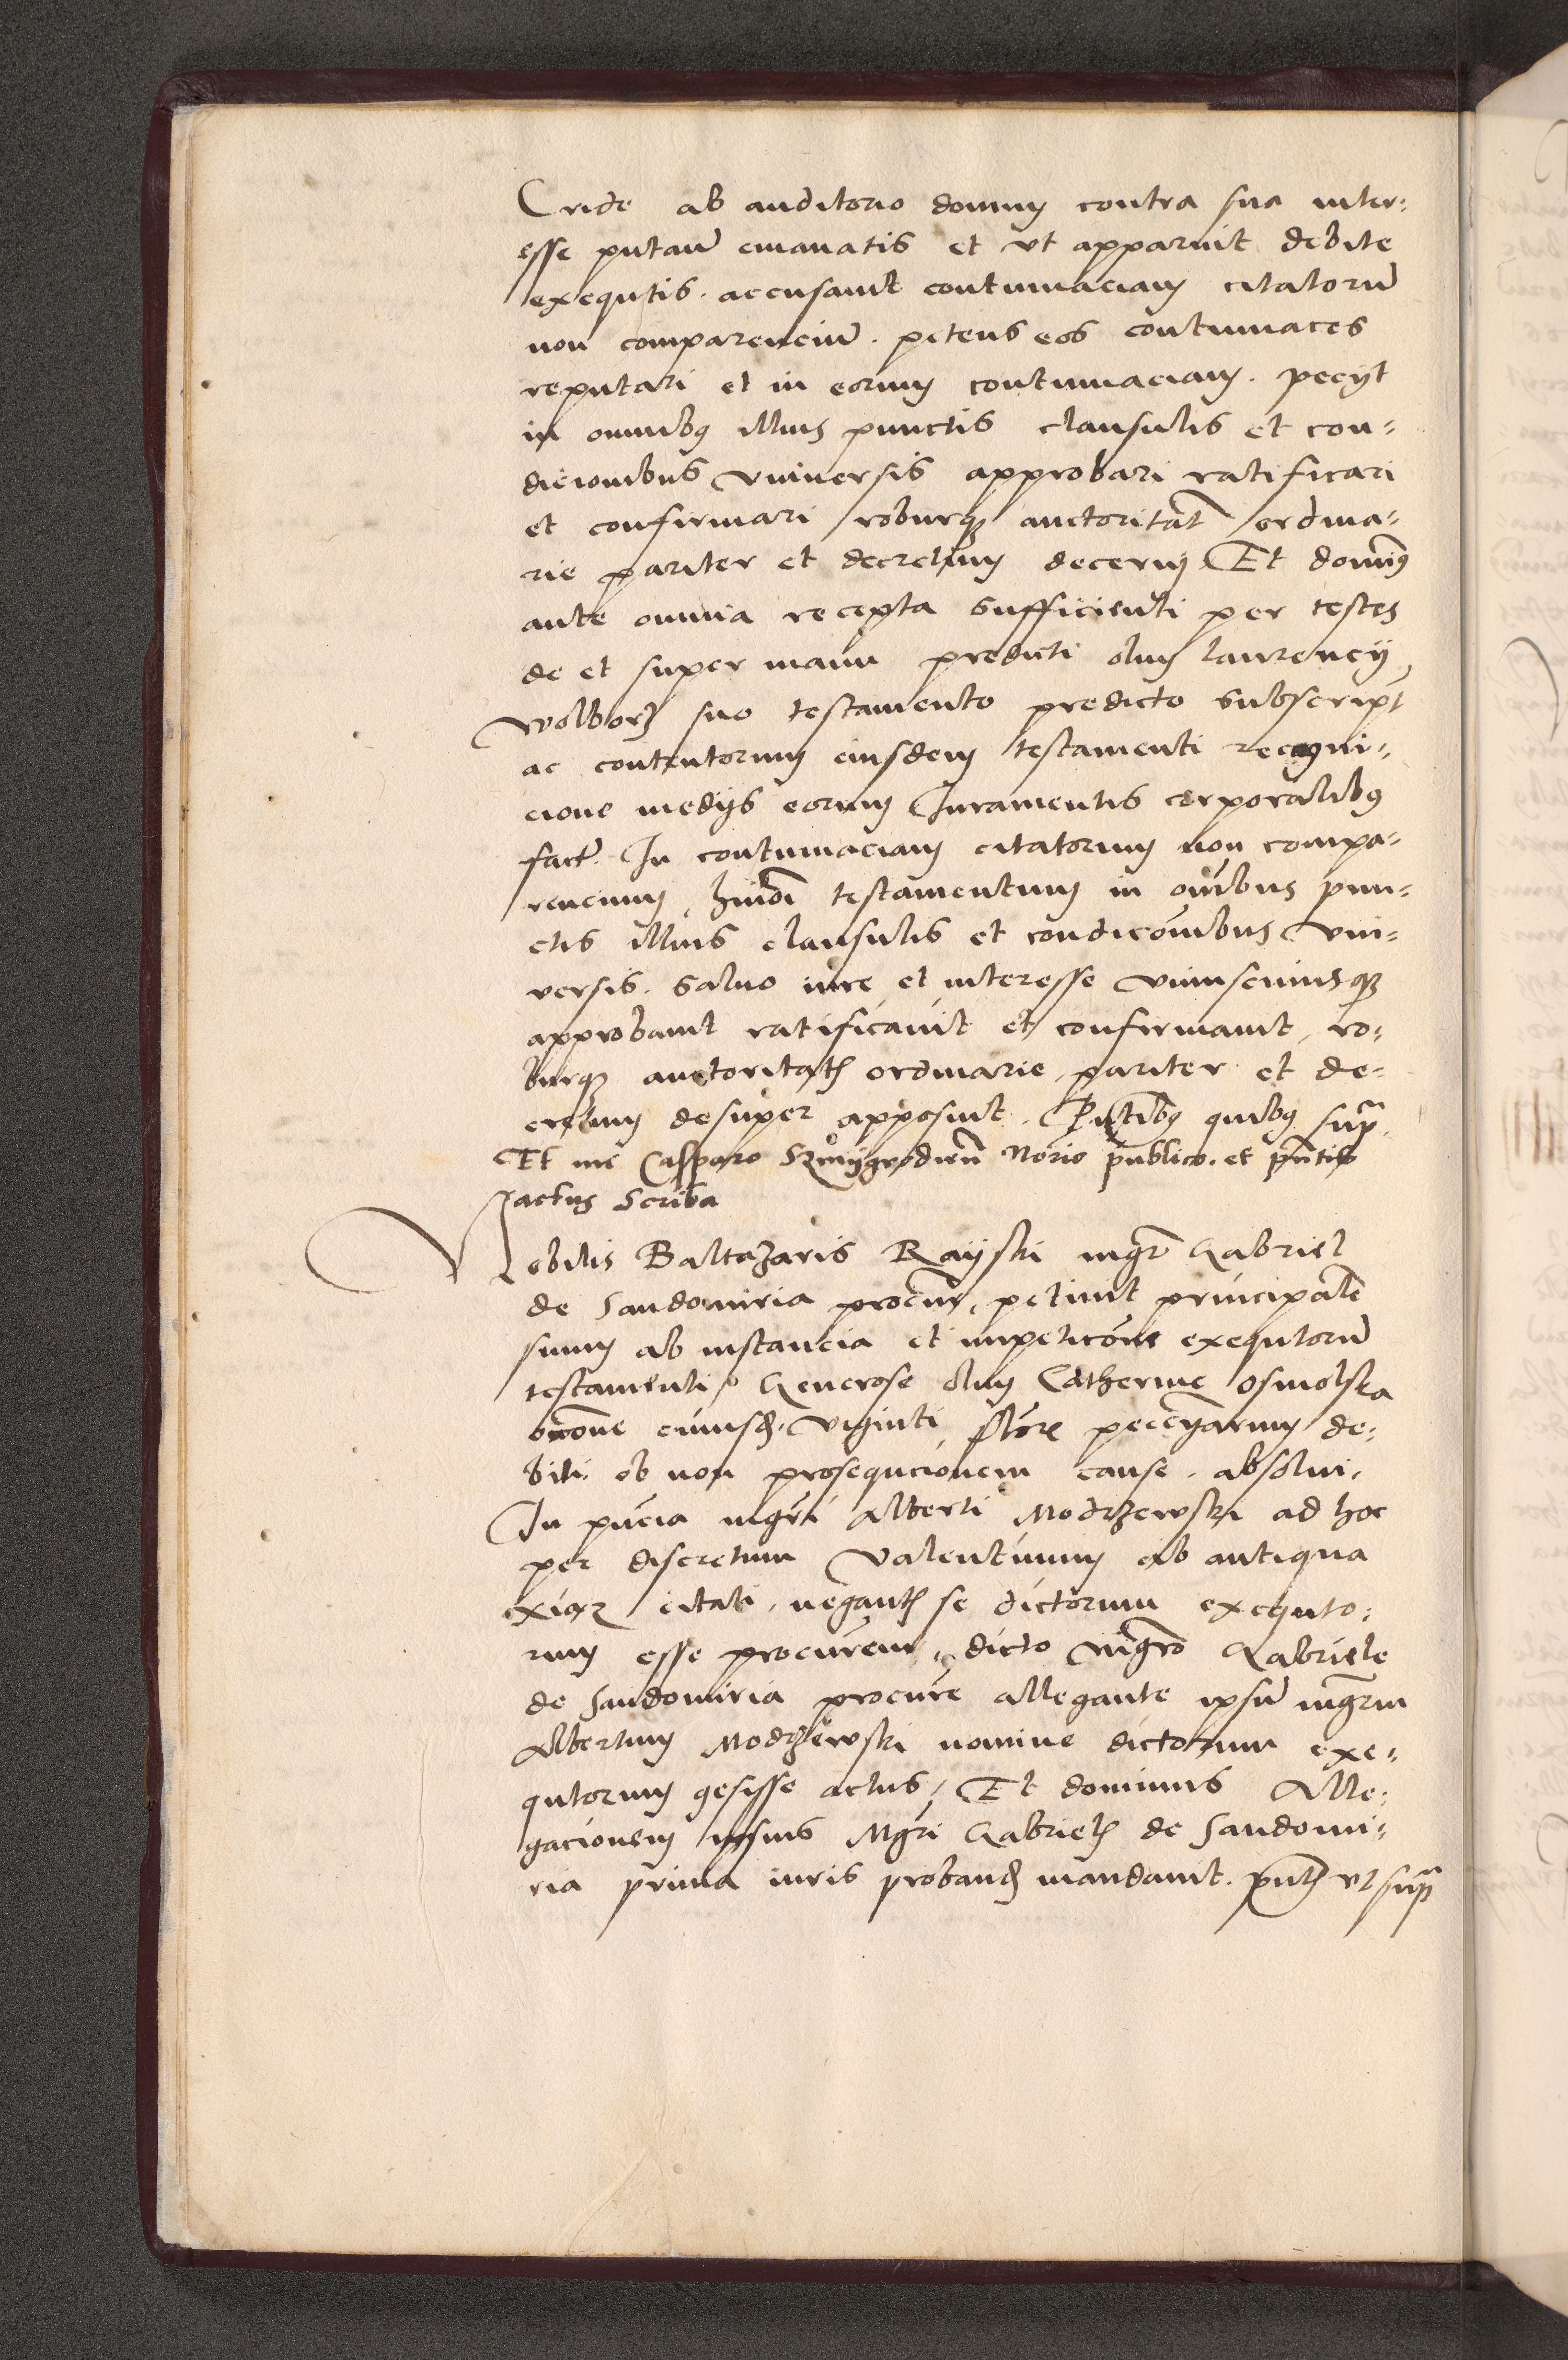 Cride ab auditorio domini contra sua inter-
esse putan̄ emanatis et vt apparuit debite
exequtis. accusauit contumaciam citatorū
non comparenciū. petens eos contumaces
reputari et in eorum contumaciam. pecyt
in omnibꝯ illius punctis clausulis et con-
dicionibus vniuersis approbari ratificari
et confirmari roburqꝫ auctoritat̄ ordina-
rie pariter et decretum decerni Et domin̄ꝯ
ante omnia recepta sufficienti per testes
de et super manu predicti olim laurencij
wolborz suo testamento predicto subscript̄
ac contentorum eiusdem testamenti recogni-
cione medijs eorum Iuramentis corporalibꝯ
fact̄. In contumaciam citatorum non compa-
rencium, hmōi testamentum in oībus pun-
ctis illius clausulis et condicōnibus vni-
versis. saluo iure et interesse vniuscuiusqꝫ
approbauit ratificauit et confirmauit, ro-
burqꝫ auctoritatꝭ ordinarie, pariter et de-
cretum desuper apposuit. Pn̄tibꝯ quibꝯ supr̄
Et me Casparo Szmijgrodien̄ Norio publico. et pn̄tis
actus scriba
Nobilis Baltazaris Raÿski mgr̄ Gabriel
de Sandomiria procur̄, petiuit principalē
suum ab instancia et impeticōne exequtorū
testamenti Generose olim Catherine osmolska
oc̄one cuiusdꝭ. viginti flōrꝭ peccuniarum de-
biti. ob non prosequcionem cause. absolui.
In pn̄cia mgr̄i Alberti Modrzewski ad hoc
per discretum Valentinum ab antiqua
citati, negantꝭ se dictorum exequto-
rum esse procurem, dicto mgrō Gabriele
de Sandomiria procure allegante ipsū mgrm
Albertum Modrzewski nomine dictorum exe-
qutorum gesisse actus, Et dominus Alle-
gacionem ipsius Mgri Gabrielꝭ de Sandomi-
ria prima iuris probandꝭ mandauit. pn̄tꝭ vt supr̄